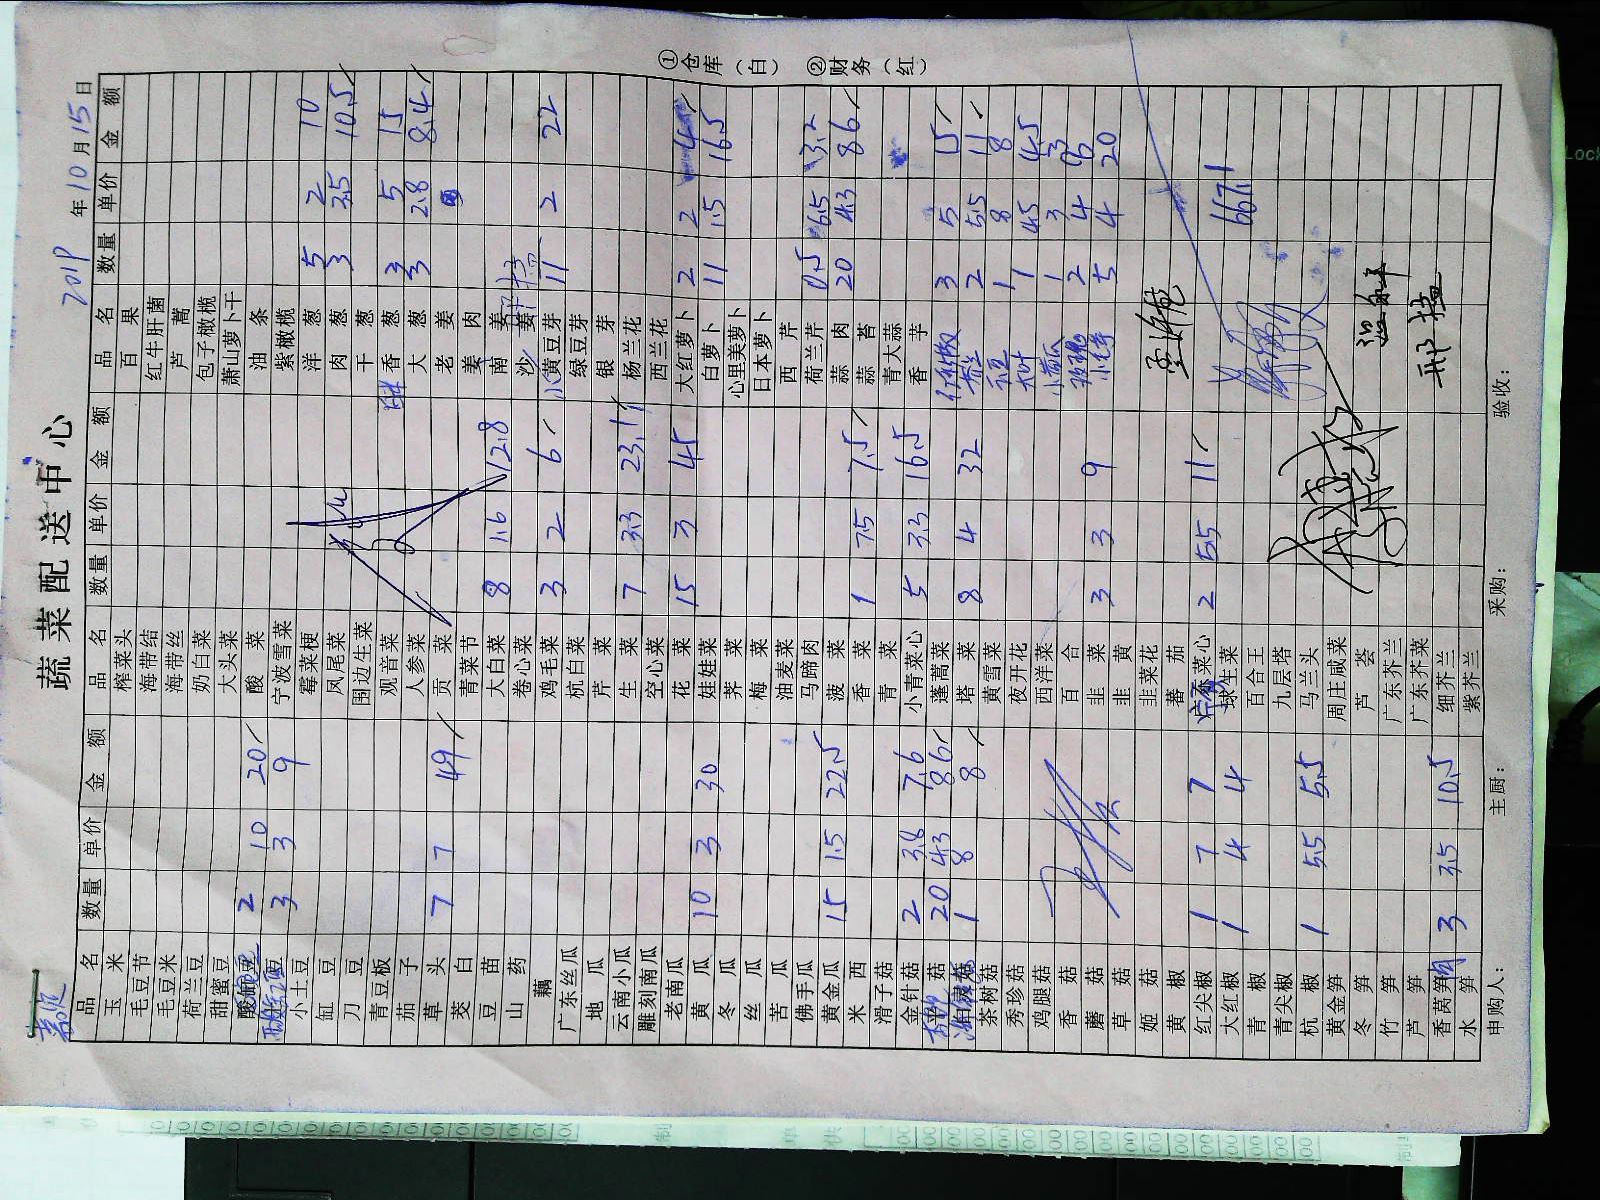 蔬菜配送中心
2019年10月15日
品名 数量 单价 金额 品名 数量 单价 金额 品名 数量 单价 金额
玉米 榨菜头 百果
毛豆节 海带结 红牛肝菌
毛豆米 海带丝 芦蒿
荷兰豆 奶白菜 包子橄榄
甜蜜豆 大头菜 萧山萝卜干
2 10 20 酸菜 油条
豆 3 3 9 宁波雪菜 紫橄榄
小土豆 霉菜梗 洋葱 5 2 10
缸豆 凤尾菜 肉葱 3 3.5 10.5
刀豆 围边生菜 干葱
青豆板 观音菜 香葱 3 5 15
茄子 人参菜 大葱 3 2.8 8.4
草头 7 7 49 贡菜 老姜
茭白 青菜节 姜肉
豆苗 大白菜 8 1.6 12.8 南姜
山药 卷心菜 沙姜
藕 鸡毛菜 3 2 6 小黄豆芽 11 2 22
广东丝瓜 杭白菜 绿豆芽
地瓜 芹菜 银芽
云南小瓜 生菜 7 3.3 23.1 杨兰花
雕刻南瓜 空心菜 西兰花
老南瓜 花菜 15 3 45 大红萝卜 2 2 4
黄瓜 10 3 30 娃娃菜 白萝卜 11 1.5 16.5
冬瓜 荠菜 心里美萝卜
丝瓜 梅菜 日本萝卜
苦瓜 油麦菜
佛手瓜 马蹄肉 西芹
黄金瓜 15 1.5 22.5 菠菜 荷兰芹 0.5 6.5 3.2
米西 香菜 1 7.5 7.5 蒜肉 20 4.3 86
滑子菇 青菜 蒜苔
金针菇 2 3.8 7.6 小青菜心 5 3.3 16.5 青大蒜
菇 20 4.3 86 蓬蒿菜 香芋
1 8 8 塔菜 8 4 32 3 5 15
茶树菇 黄雪菜 2 5.5 11
秀珍菇 夜开花 1 8 8
鸡腿菇 西洋菜 1 4.5 4.5
香菇 百合 小黄瓜 1 3 3
蘑菇 韭菜 3 3 9 2 4
草菇 韭黄 5 4 20
姬菇 韭菜花
黄椒 番茄
红尖椒 1 7 7 菜心 2 5.5 11
大红椒 1 4 4 球生菜 667.1
青椒 百合王
青尖椒 九层塔
杭椒 1 5.5 5.5 马兰头
黄金笋 周庄咸菜
冬笋 芦荟
竹笋 广东芥兰
芦笋 广东芥菜
香莴笋 3 3.5 10.5 细芥兰
水笋 紫芥兰
申购人： 主厨： 采购： 验收：
①仓库（白） ②财务（红）